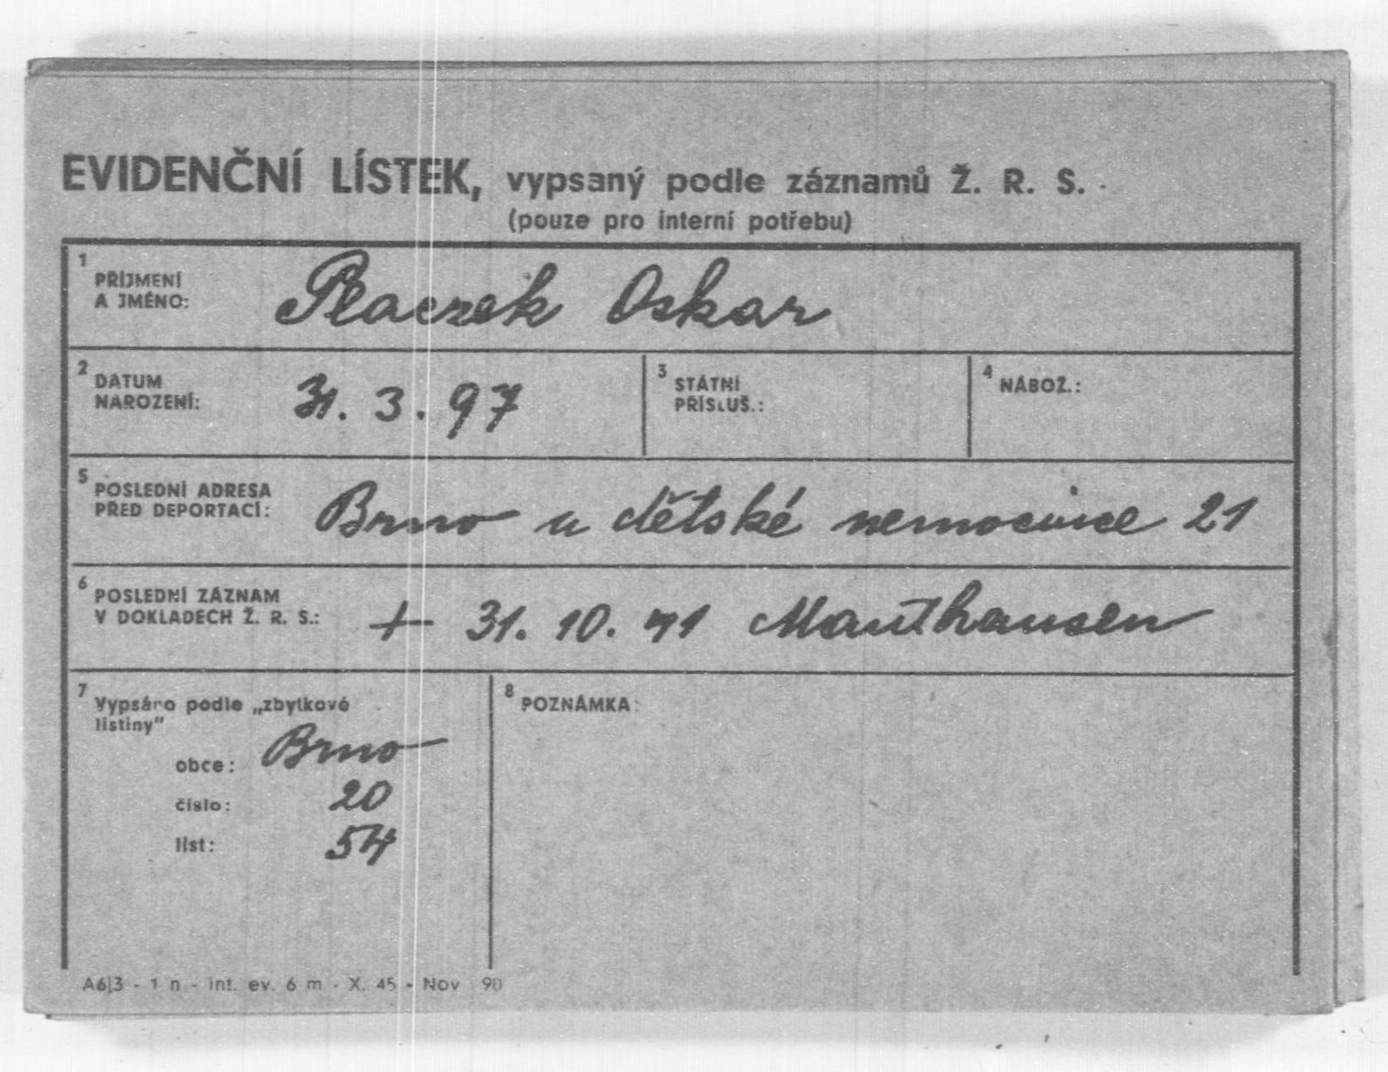 EVIDENČNÍ LÍSTEK, vypsaný podle záznamů Ž. R. S.
(pouze pro interní potřebu)
1 PŘÍJMENÍ
A JMÉNO: Placzek Oskar
2 DATUM
NAROZENÍ: 31. 3. 97
3 STÁTNÍ
PŘÍSLUŠ.:
4 NÁBOŽ.:
5 POSLEDNÍ ADRESA
PŘED DEPORTACÍ: Brno u dětské nemocnice 21
6 POSLEDNÍ ZÁZNAM
V DOKLADECH Ž. R. S.: + 31. 10. 41 Mauthausen
7 Vypsáno podle „zbytkové
listiny"
obce: Brno
číslo: 20
list: 54
8 POZNÁMKA:
A6|3 - 1 n - int. ev. 6 m - X. 45 - Nov 90